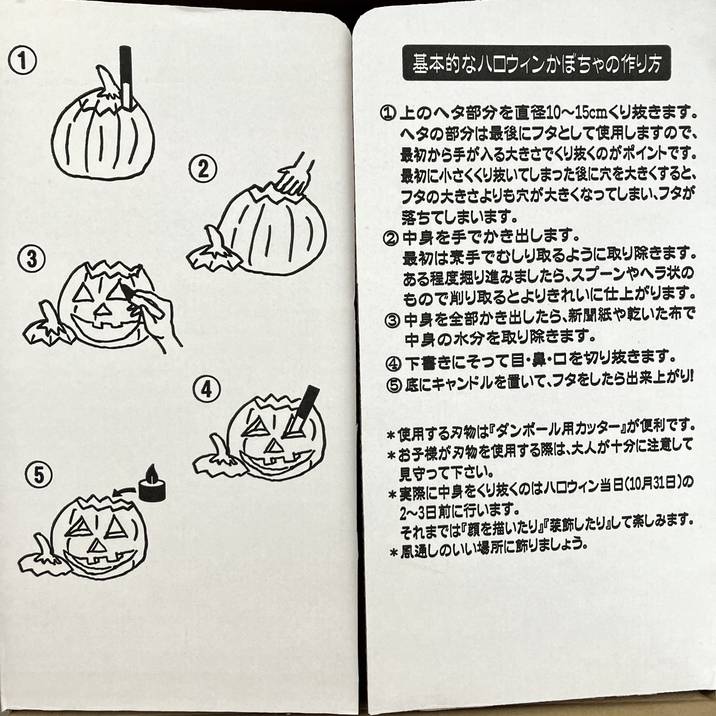 ①
②
③
④
⑤
基本的なハロウィンかぼちゃの作り方
①上のヘタ部分を直径10～15cmくり抜きます。
ヘタの部分は最後にフタとして使用しますので、
最初から手が入る大きさでくり抜くのがポイントです。
最初に小さくくり抜いてしまった後に穴を大きくすると、
フタの大きさよりも穴が大きくなってしまい、フタが
落ちてしまいます。
②中身を手でかき出します。
最初は素手でむしり取るように取り除きます。
ある程度掘り進みましたら、スプーンやヘラ状の
もので削り取るとよりきれいに仕上がります。
③中身を全部かき出したら、新聞紙や乾いた布で
中身の水分を取り除きます。
④下書きにそって目・鼻・口を切り抜きます。
⑤底にキャンドルを置いて、フタをしたら出来上がり!
＊使用する刃物は『ダンボール用カッター』が便利です。
＊お子様が刃物を使用する際は、大人が十分に注意して
見守って下さい。
＊実際に中身をくり抜くのはハロウィン当日(10月31日)の
2～3日前に行います。
それまでは『顔を描いたり』『装飾したり』して楽しみます。
＊風通しのいい場所に飾りましょう。